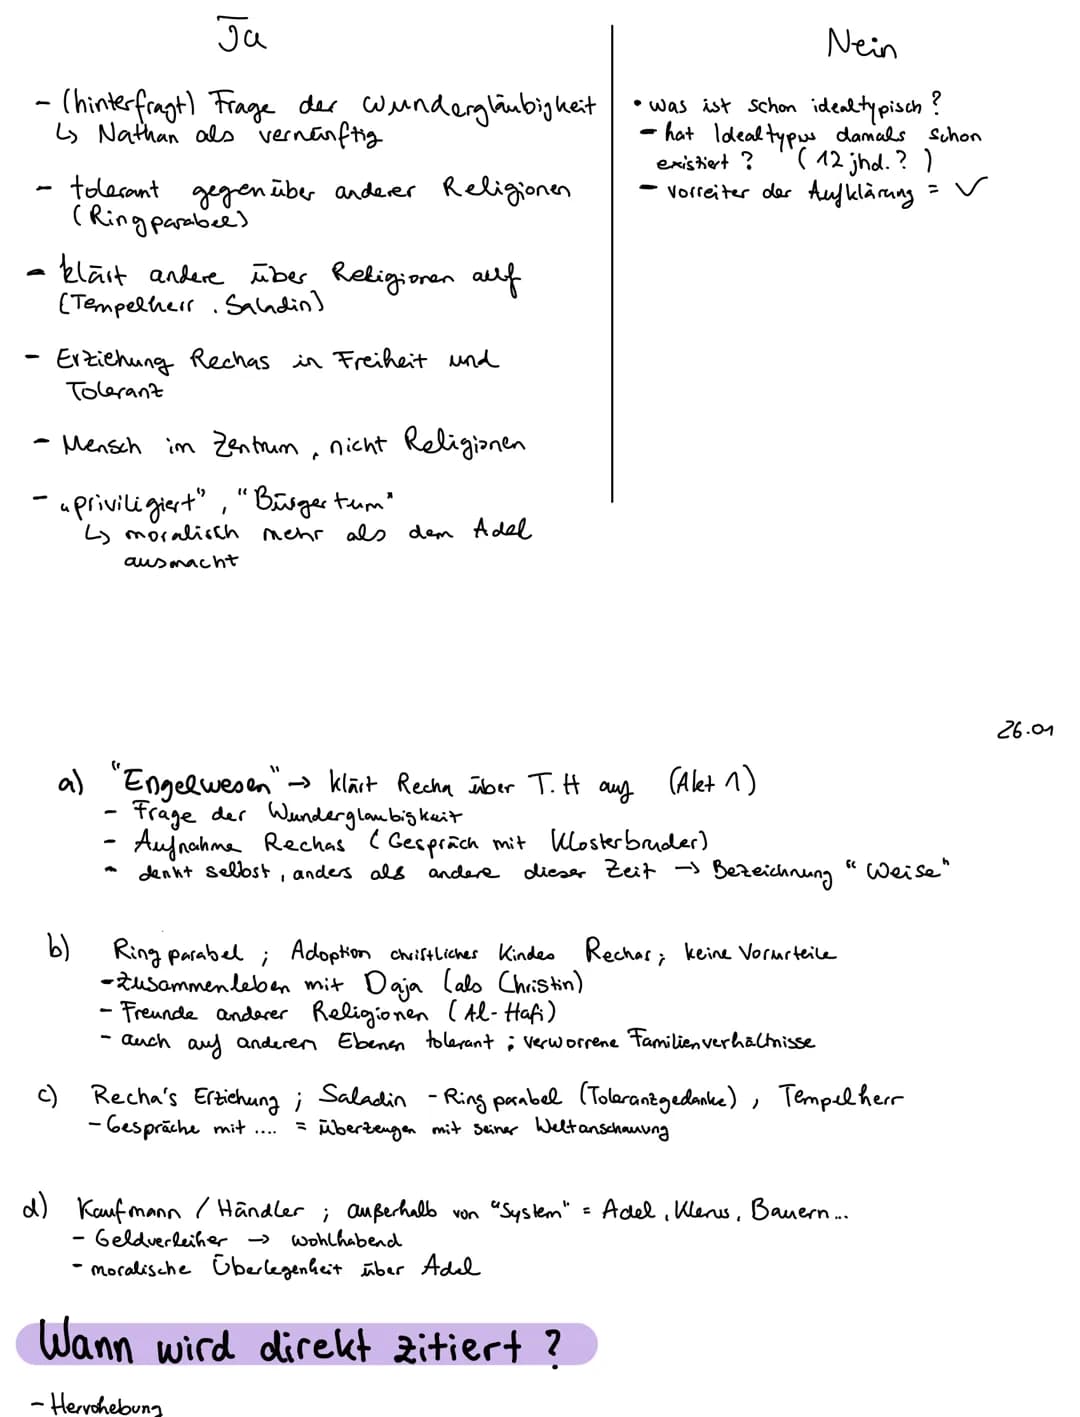 Ja
- (hinterfragt) Frage der Wundergläubigkeit
↳ Nathan als vernünftig
- tolerant gegenüber anderer Religionen
(Ringparabel)
- klärt andere über Religionen auf
(Tempelherr, Saladin)
- Erziehung Rechas in Freiheit und
Toleranz
- Mensch im Zentrum, nicht Religionen
- "priviligiert", "Bürgertum"
↳ moralisch mehr als dem Adel
ausmacht
Nein
• was ist schon idealtypisch?
- hat Idealtypus damals schon
existiert? (12 jhd.?)
- Vorreiter der Aufklärung = ✓
26.01
a) "Engelwesen" → klärt Recha über T.H auf (Akt 1)
- Frage der Wundergläubigkeit
- Aufnahme Rechas (Gespräch mit Klosterbruder)
- denkt selbst, anders als andere dieser Zeit → Bezeichnung "Weise"
b) Ringparabel; Adoption christliches Kindes Rechas; keine Vorurteile
- Zusammenleben mit Daja (als Christin)
- Freunde anderer Religionen (Al-Hafi)
- auch auf anderen Ebenen tolerant; verworrene Familienverhältnisse
c) Recha's Erziehung; Saladin - Ringparabel (Toleranzgedanke), Tempelherr
- Gespräche mit .... = überzeugen mit seiner Weltanschauung
d) Kaufmann / Händler; außerhalb von "System" = Adel, Klerus, Bauern...
- Geldverleiher → wohlhabend
- moralische Überlegenheit über Adel
Wann wird direkt zitiert?
- Hervohebung